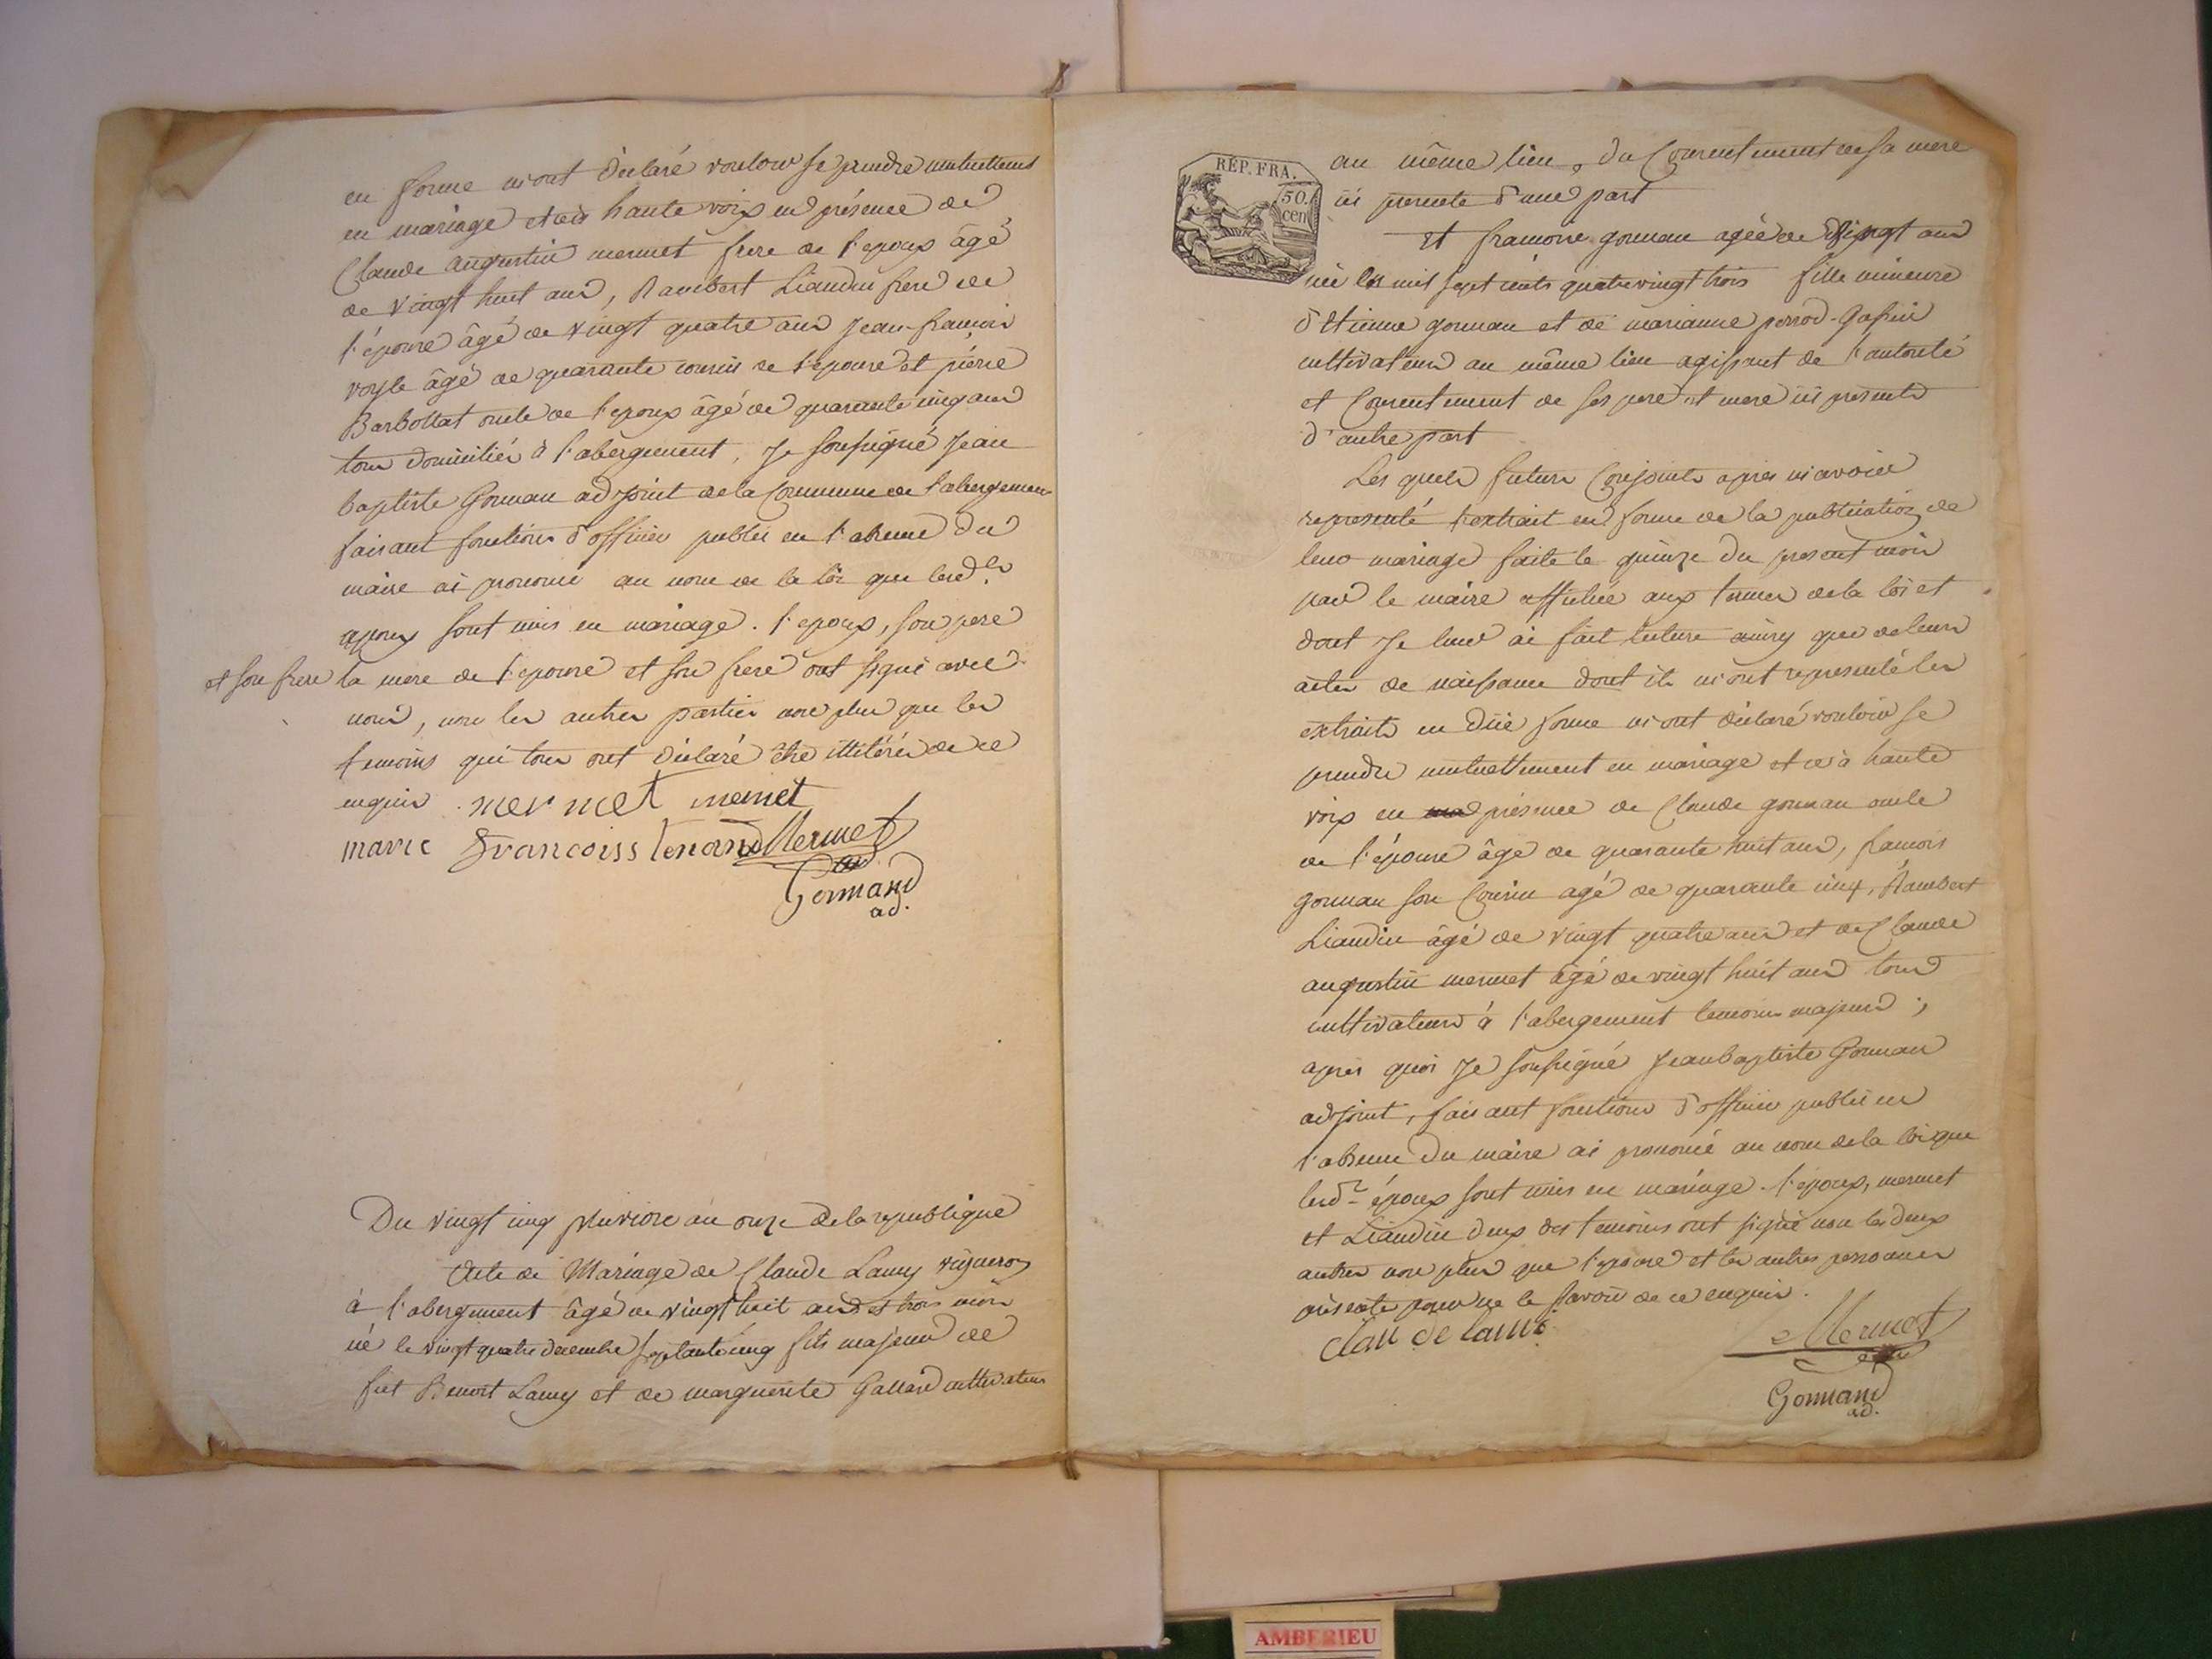 en forme m'ont déclaré vouloir se prendre mutuellement
en mariage et ce à haute voix en présence de
Claude augustin mermet frere de l'epoux âgé
de vingt huit ans, Rambert Liaudin frere de
l'épouse âgé de vingt quatre ans Jean-francois
âgé de quarante cousin de l'epouse et pierre
Barbollat oncle de l'epoux âgé de quarante cinq ans
tous domiciliés à l'abergement, Je soussigné Jean
baptiste Gonnan adjoint de la Commune de l'abergement
faisant fonctions d'officier public en l'absence du
maire ai prononcé au nom de la loi que lesd.ts
epoux sont unis en mariage. l'epoux, son pere
et son frere la mere de l'epouse et son frere ont signé avec
nous, non les autres parties non plus que les
temoins qui tous ont déclaré être illitérés de ce
enquis. mermet mermet
marie francoiss Mermet
Gonnand
ad.
Du vingt cinq pluviose an onze de la republique
Acte de Mariage de Claude Lamy vigneron
à l'abergement âgé de vingt huit ans et trois mois
né le vingt quatre decembre septante cinq fils majeur de
fut Benoit Lamy et de marguerite Galland cultivateurs
RÉP. FRA.
50.
cen
au même lieu, du Consentement de sa mere
ici presente d'une part
Et francoise gonnan agée de vingt ans
née les mil sept cents quatrevingt trois fille mineure
d'Etienne gonnan et de marianne perrod-Gassin
cultivateurs au même lieu agissant de l'autorité
et Consentement de ses pere et mere ici présents
d'autre part
Les quels futurs Conjoints apres m'avoir
representé l'extrait en forme de la publication de
leur mariage faite le quinze du present mois
par le maire affichée aux termes de la loi et
dont Je leur ai fait lecture ainsy que de leurs
actes de naissance dont ils m'ont representé les
extraits en düe forme m'ont déclaré vouloir se
prendre mutuellement en mariage et ce à haute
voix en présence de Claude gonnan oncle
de l'épouse âgé de quarante huit ans, francois
gonnan son Cousin agé de quarante cinq, Rambert
Liaudin âgé de vingt quatre ans et de Claude
augustin mermet âgé de vingt huit ans tous
cultivateurs à l'abergement temoins majeurs;
apres quoi Je soussigné Jeanbaptiste Gonnan
adjoint, faisant fonctions d'officier public en
l'absence du maire ai prononcé au nom de la loi que
lesd.ts époux sont unis en mariage. l'epoux, mermet
et Liaudin deux des temoins ont signé non les deux
autres non plus que l'epouse et les autres personnes
presente pour ne le savoir de ce enquis.
Clau de lami Mermet
Gonnand
ad.
AMBERIEU